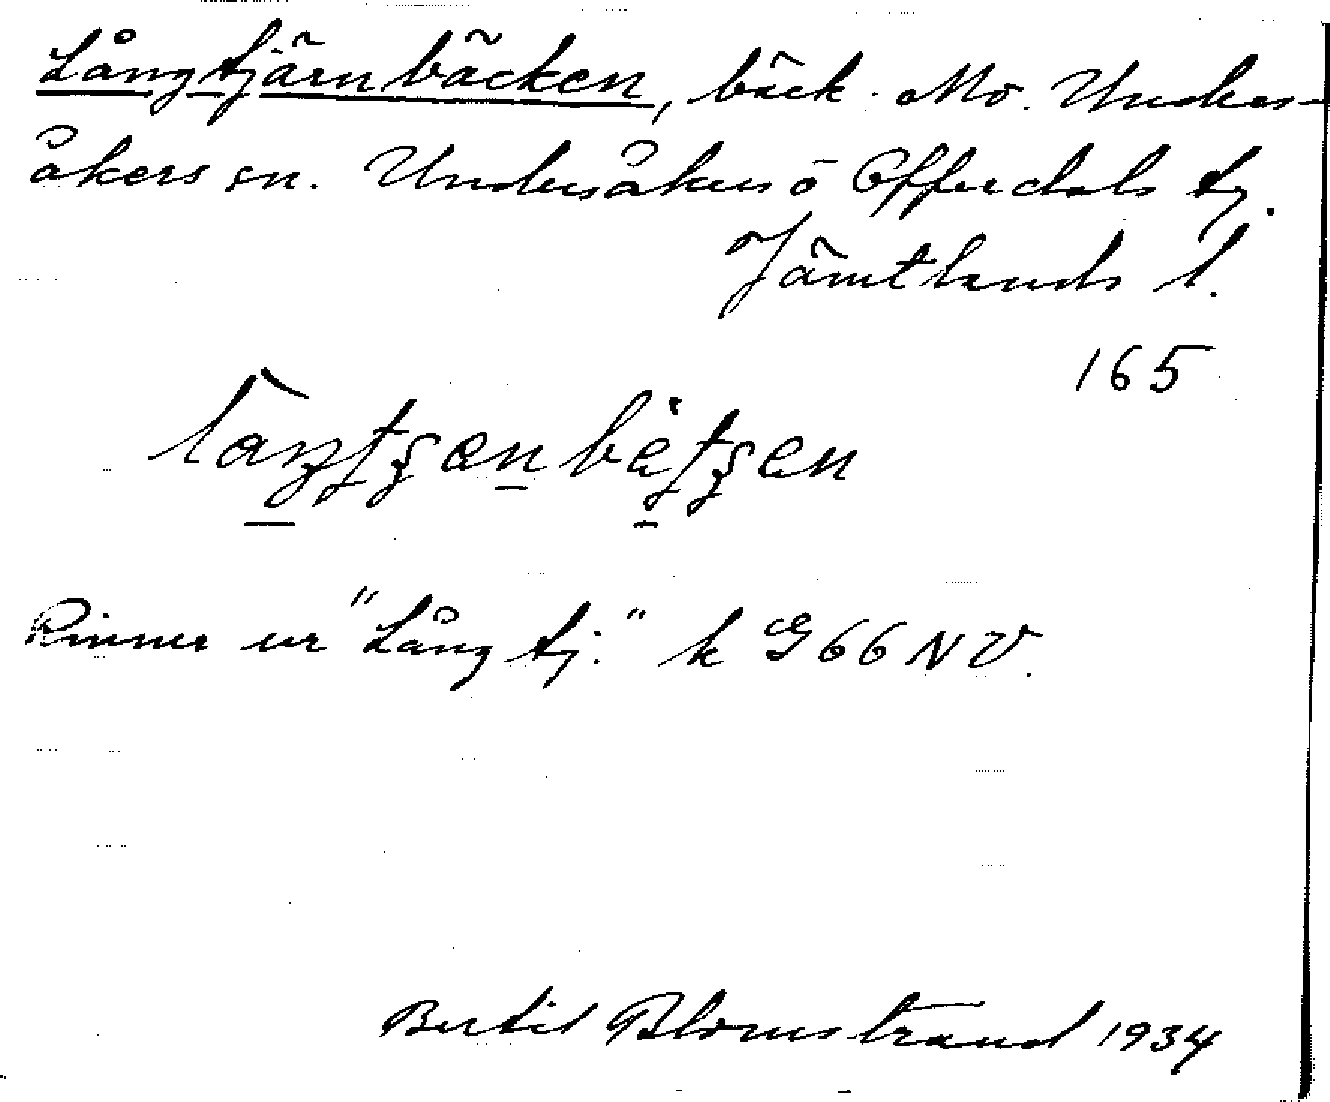 Långtjärnbäcken, bäck. Mo. Unders-
åkers sn. Undersåkers o Offerdals tg.
Jämtlands l.
165
Rinner ur "Långtj." k G66NV.
Bertil Blomstrand 1934